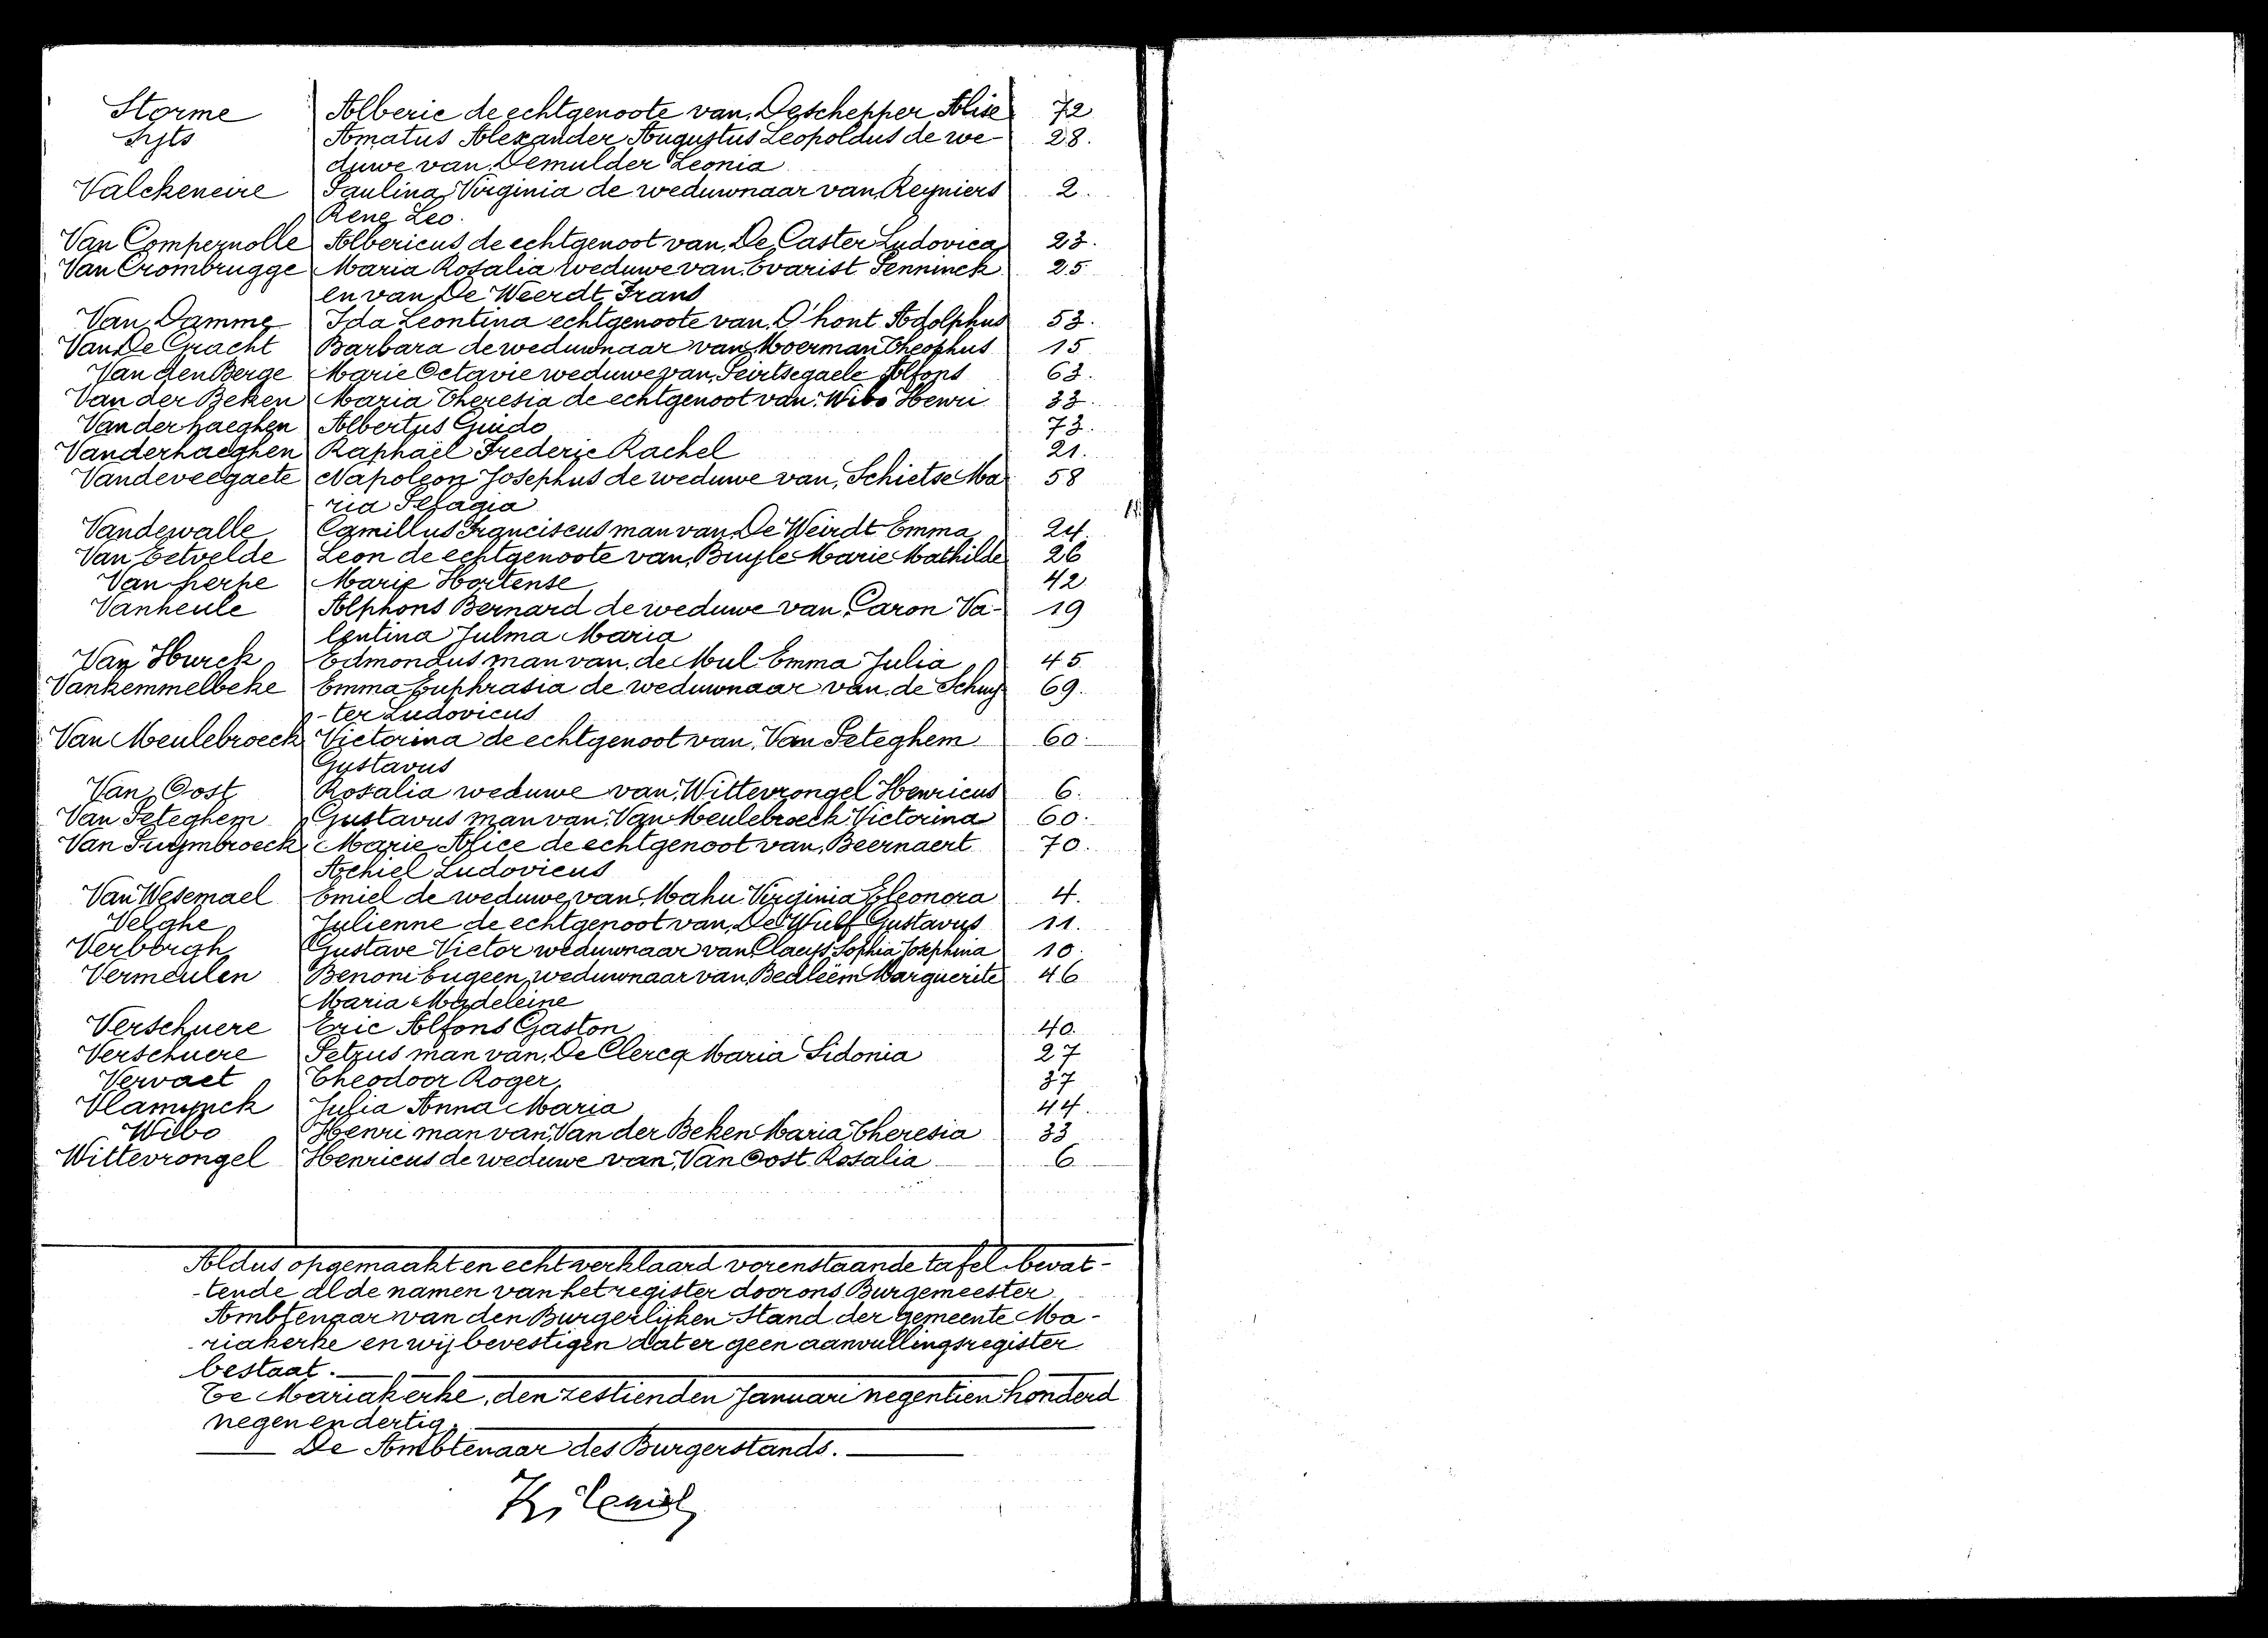 Storme Alberic de echtgenoote van, Deschepper Alise 72
Syts Amatus Alexander Augustus Leopoldus de we- 28.
duwe van, Demulder Leonia
Valckeneire Paulina Virginia de weduwnaar van, Reyniers 2.
René Leo.
Van Compernolle Albericus de echtgenoot van, De Caster Ludovica 23.
Van Crombrugge Maria Rosalia weduwe van, Evarist Penninck 25
en van De Weerdt Frans
Van Damme Ida Leontina echtgenoote van, D'hont Adolphus 53.
Van De Cracht Barbara de weduwnaar van Moerman Theophus 15
Van den Berge Marie Octavie weduwe van, Peirtsegaele Alfons 63.
Van der Beken Maria Theresia de echtgenoot van, Wibo Henri 33.
Van der haeghen Albertus Guido 73.
Vanderhaeghen Raphaël Frederic Rachel 21.
Vandeveegaete Napoleon Josephus de weduwe van, Schietse Ma 58
ria Pelagia
Vandewalle Camillus Franciscus man van De Weirdt Emma 24.
Van Eetvelde Leon de echtgenoote van, Buyle Marie Mathilde 26
Van herpe Marie Hortense 42
Vanheule Alphons Bernard de weduwe van, Caron Va- 19
lentina Julma Maria
Van Hurck Edmondus man van, de Mul Emma Julia 45
Vankemmelbeke Emma Euphrasia de weduwnaar van, de Schuy 69.
-ter Ludovicus
Van Meulebroeck Victorina de echtgenoot van, Van Peteghem 60.
Gustavus
Van Oost Rosalia weduwe van, Wittevrongel Henricus 6.
Van Peteghem Gustavus man van, Van Meulebroeck Victorina 60.
Van Puymbroeck Marie Alice de echtgenoot van, Beernaert 70.
Achiel Ludovicus
Van Wesemael Emiel de weduwe van, Mahu Virginia Eleonora 4.
Velghe Julienne de echtgenoot van, De Wulf Gustavus 11.
Verborgh Gustave Victor weduwnaar van Claeys Sophia Josephina 10.
Vermeulen Benoni Eugeen, weduwnaar van, Bedleëm Marguerite 46
Maria Madeleine
Verschuere Eric Alfons Gaston 40.
Verschuere Petrus man van, De Clercq Maria Sidonia 27
Vervaet Theodoor Roger. 37
Vlamynck Julia Anna Maria 44.
Wibo Henri man van, Van der Beken Maria Theresia 33
Wittevrongel Henricus de weduwe van, Van Oost Rosalia 6
Aldus opgemaakt en echt verklaard vorenstaande tafel bevat-
-tende al de namen van het register door ons Burgemeester
Ambtenaar van den Burgerlijken Stand der gemeente Ma-
-riakerke en wij bevestigen dat er geen aanvullingsregister
bestaat.
Te Mariakerke, den zestienden Januari negentien honderd
negen en dertig.
De Ambtenaar des Burgerstands.